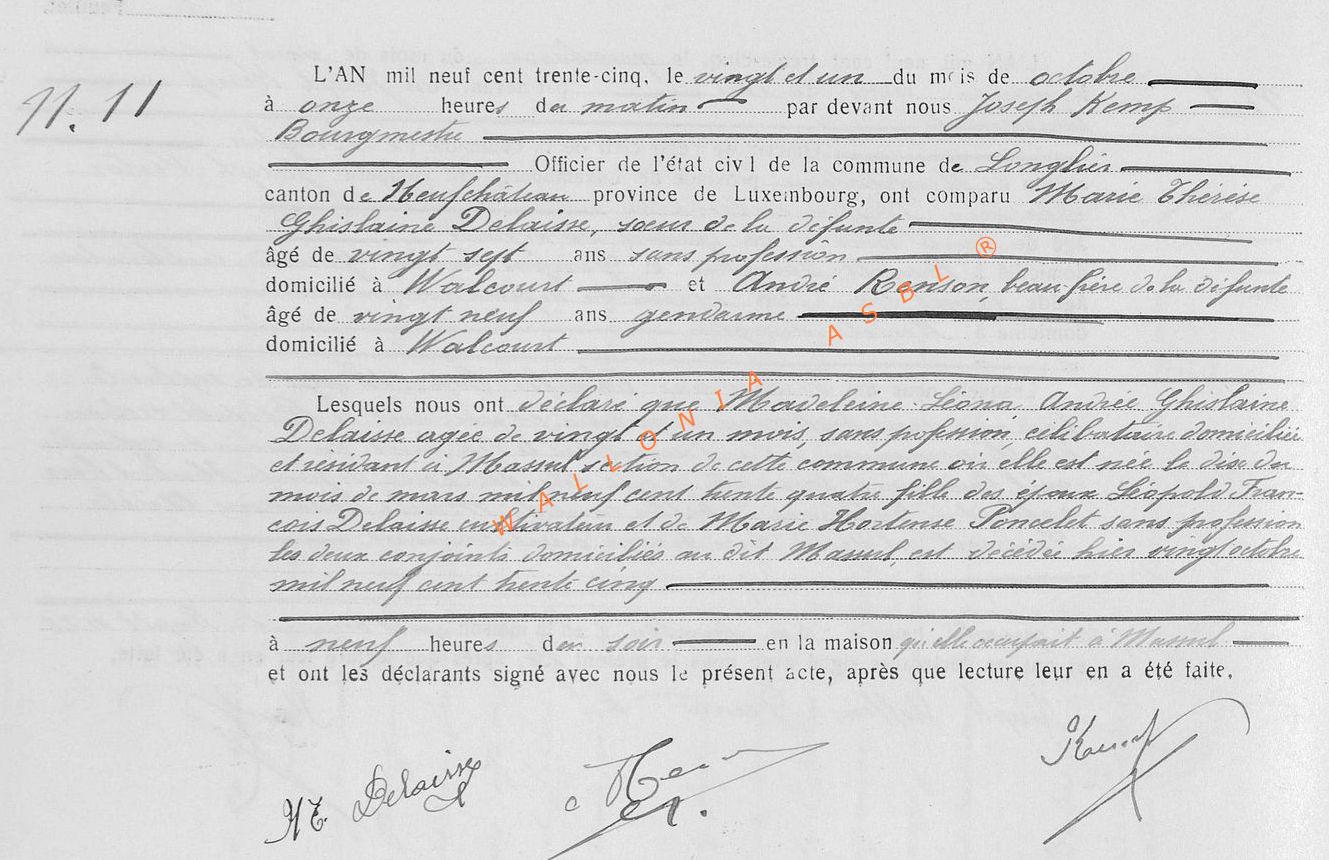 Feuillet
L'AN mil neuf cent trente-cinq, le vingt et un du mois de octobre
N. 11
à onze heures du matin par devant nous Joseph Kemp
Bourgmestre
Officier de l'état civil de la commune de Longlier
canton de Neufchâteau province de Luxembourg, ont comparu Marie Thérèse
Ghislaine Delaisse, sœur de la défunte
âgé de vingt sept ans sans profession
domicilié à Walcourt et André Renson, beau frère de la défunte
âgé de vingt neuf ans gendarme
domicilié à Walcourt
Lesquels nous ont déclaré que Madeleine Léona, Andrée Ghislaine
Delaisse agée de vingt et un mois, sans profession, célibataire domiciliée
et résidant à Massul section de cette commune où elle est née le dix du
mois de mars mil neuf cent trente quatre fille des époux Léopold Fran-
çois Delaisse cultivateur et de Marie Hortense Poncelet sans profession
les deux conjoints domiciliés au dit Massul, est décédée hier vingt octobre
mil neuf cent trente cinq
à neuf heures du soir en la maison qu'elle occupait à Massul
et ont les déclarants signé avec nous le présent acte, après que lecture leur en a été faite.
M.T. Delaisse
WALLONIA ASBL ®